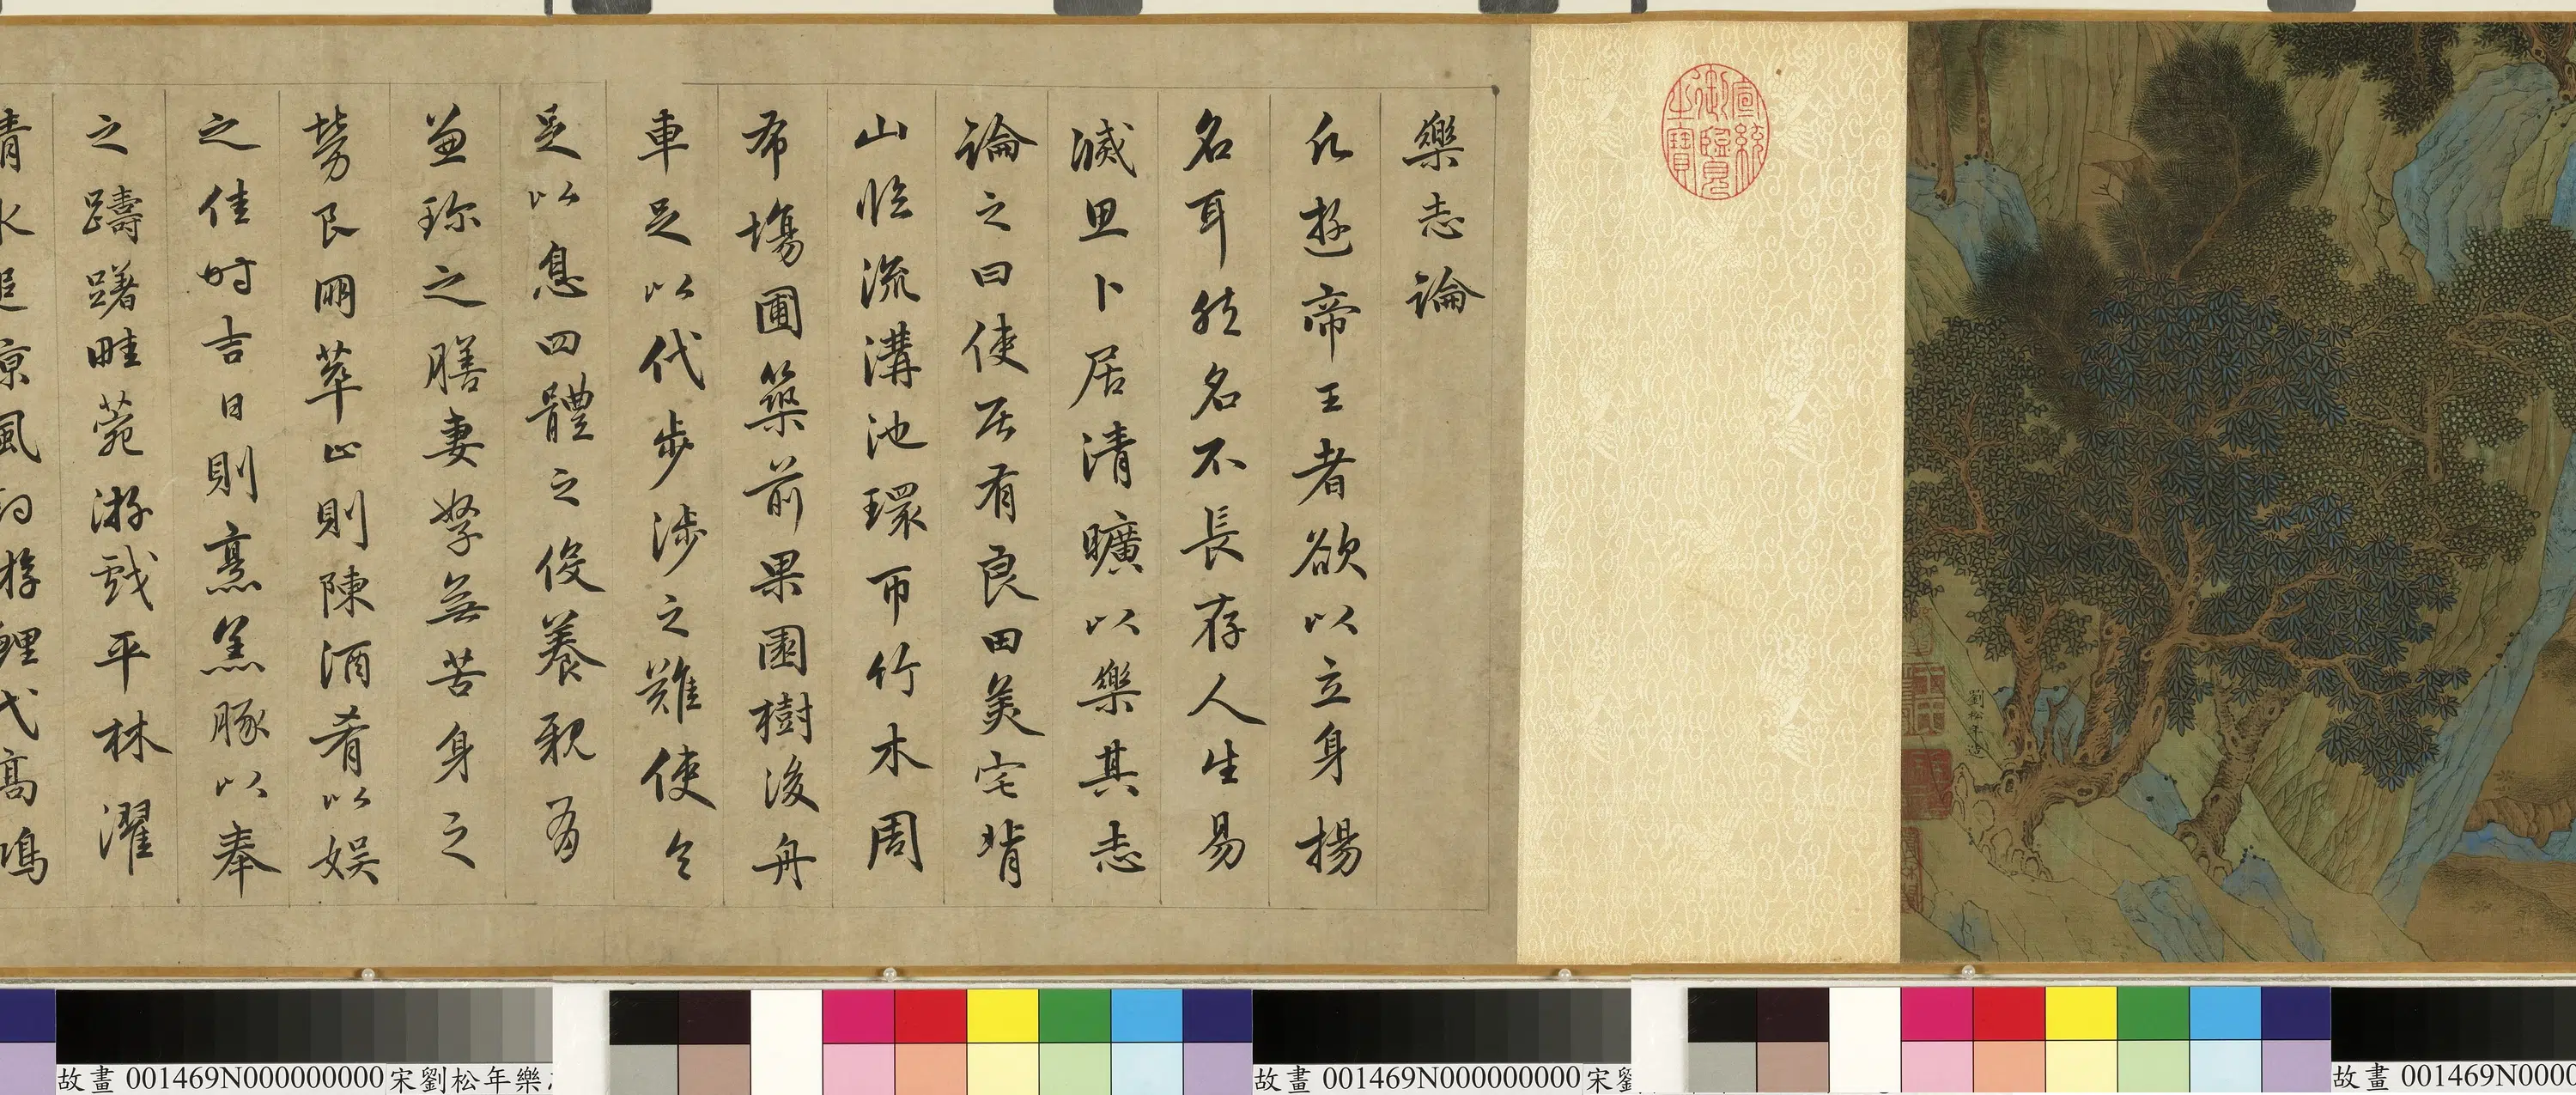 宣統御覽之寶
劉松年造
樂志論
凡遊帝王者欲以立身揚
名耳然名不長存人生易
滅思卜居清曠以樂其志
論之曰使居有良田美宅背
山臨流溝池環帀竹木周
布場圃築前果園樹後舟
車足以代步涉之難使令
足以息四體之役養親有
兼珍之膳妻孥無苦身之
勞良朋萃止則陳酒肴以娛
之佳時吉日則烹羔豚以奉
之躊躇畦菀游戲平林濯
清水追涼風釣游鯉弋高鴻
故畫 001469N000000000 宋劉松年樂
故畫 001469N000000000 宋劉
故畫 001469N0000